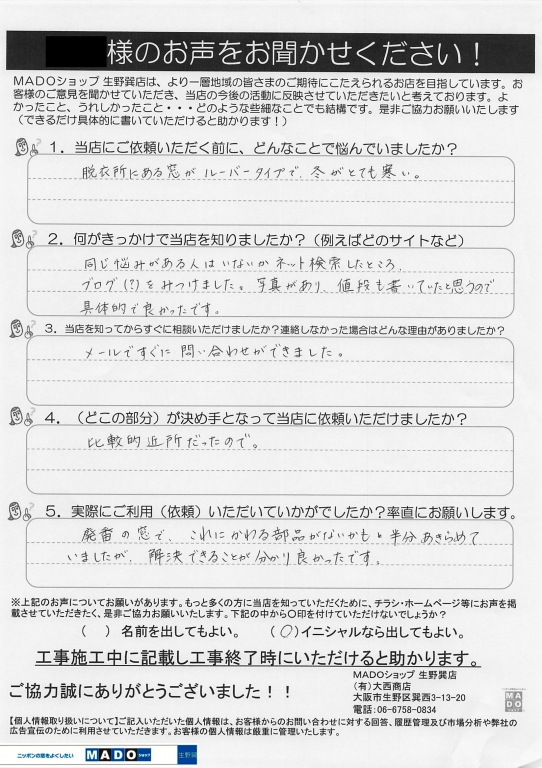 様のお声をお聞かせください！
MADOショップ 生野巽店は、より一層地域の皆さまのご期待にこたえられるお店を目指しています。お
客様のご意見を聞かせていただき、当店の今後の活動に反映させていただきたいと考えております。よ
かったこと、うれしかったこと・・・どのような些細なことでも結構です。是非ご協力お願いいたします
（できるだけ具体的に書いていただけると助かります！）
1．当店にご依頼いただく前に、どんなことで悩んでいましたか？
脱衣所にある窓が ルーバータイプで、冬がとても寒い。
2．何がきっかけで当店を知りましたか？（例えばどのサイトなど）
同じ悩みがある人はいないか ネット検索したところ、
ブログ(?)をみつけました。写真があり、値段も書いていたと思うので
具体的で良かったです。
3．当店を知ってからすぐに相談いただけましたか？連絡しなかった場合はどんな理由がありましたか？
メールですぐに 問い合わせができました。
4．（どこの部分）が決め手となって当店に依頼いただけましたか？
比較的近所だったので。
5．実際にご利用（依頼）いただいていかがでしたか？率直にお願いします。
廃番の窓で、これにかわる部品がないかもと半分あきらめて
いましたが、解決できることが分かり良かったです。
※上記のお声についてお願いがあります。もっと多くの方に当店を知っていただくために、チラシ・ホームページ等にお声を掲
載させていただきたく、是非ご協力お願いいたします。下記の中から〇印を付けていただけないでしょうか？
（　）名前を出してもよい。　（〇）イニシャルなら出してもよい。
工事施工中に記載し工事終了時にいただけると助かります。
ご協力誠にありがとうございました！！
MADOショップ 生野巽店
（有）大西商店
大阪市生野区巽西3-13-20
電話：06-6758-0834
MADO
【個人情報取り扱いについて】ご記入いただいた個人情報は、お客様からのお問い合わせに対する回答、履歴管理及び市場分析や弊社の
広告宣伝のために利用させていただきます。お客様の個人情報は厳重に管理いたします。
ニッポンの窓をよくしたい MADOショップ 生野巽